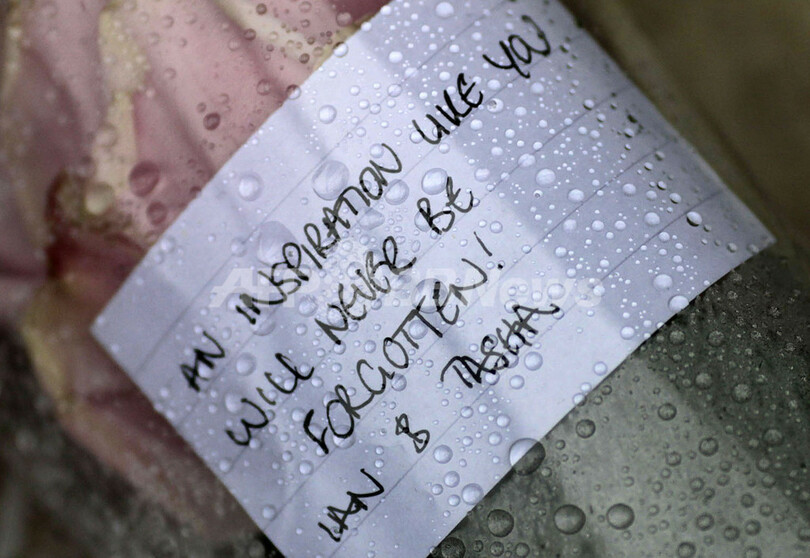 AN INSPIRATION LIKE YOU
WILL NEVER BE
FORGOTTEN!
IAN & TASCHA